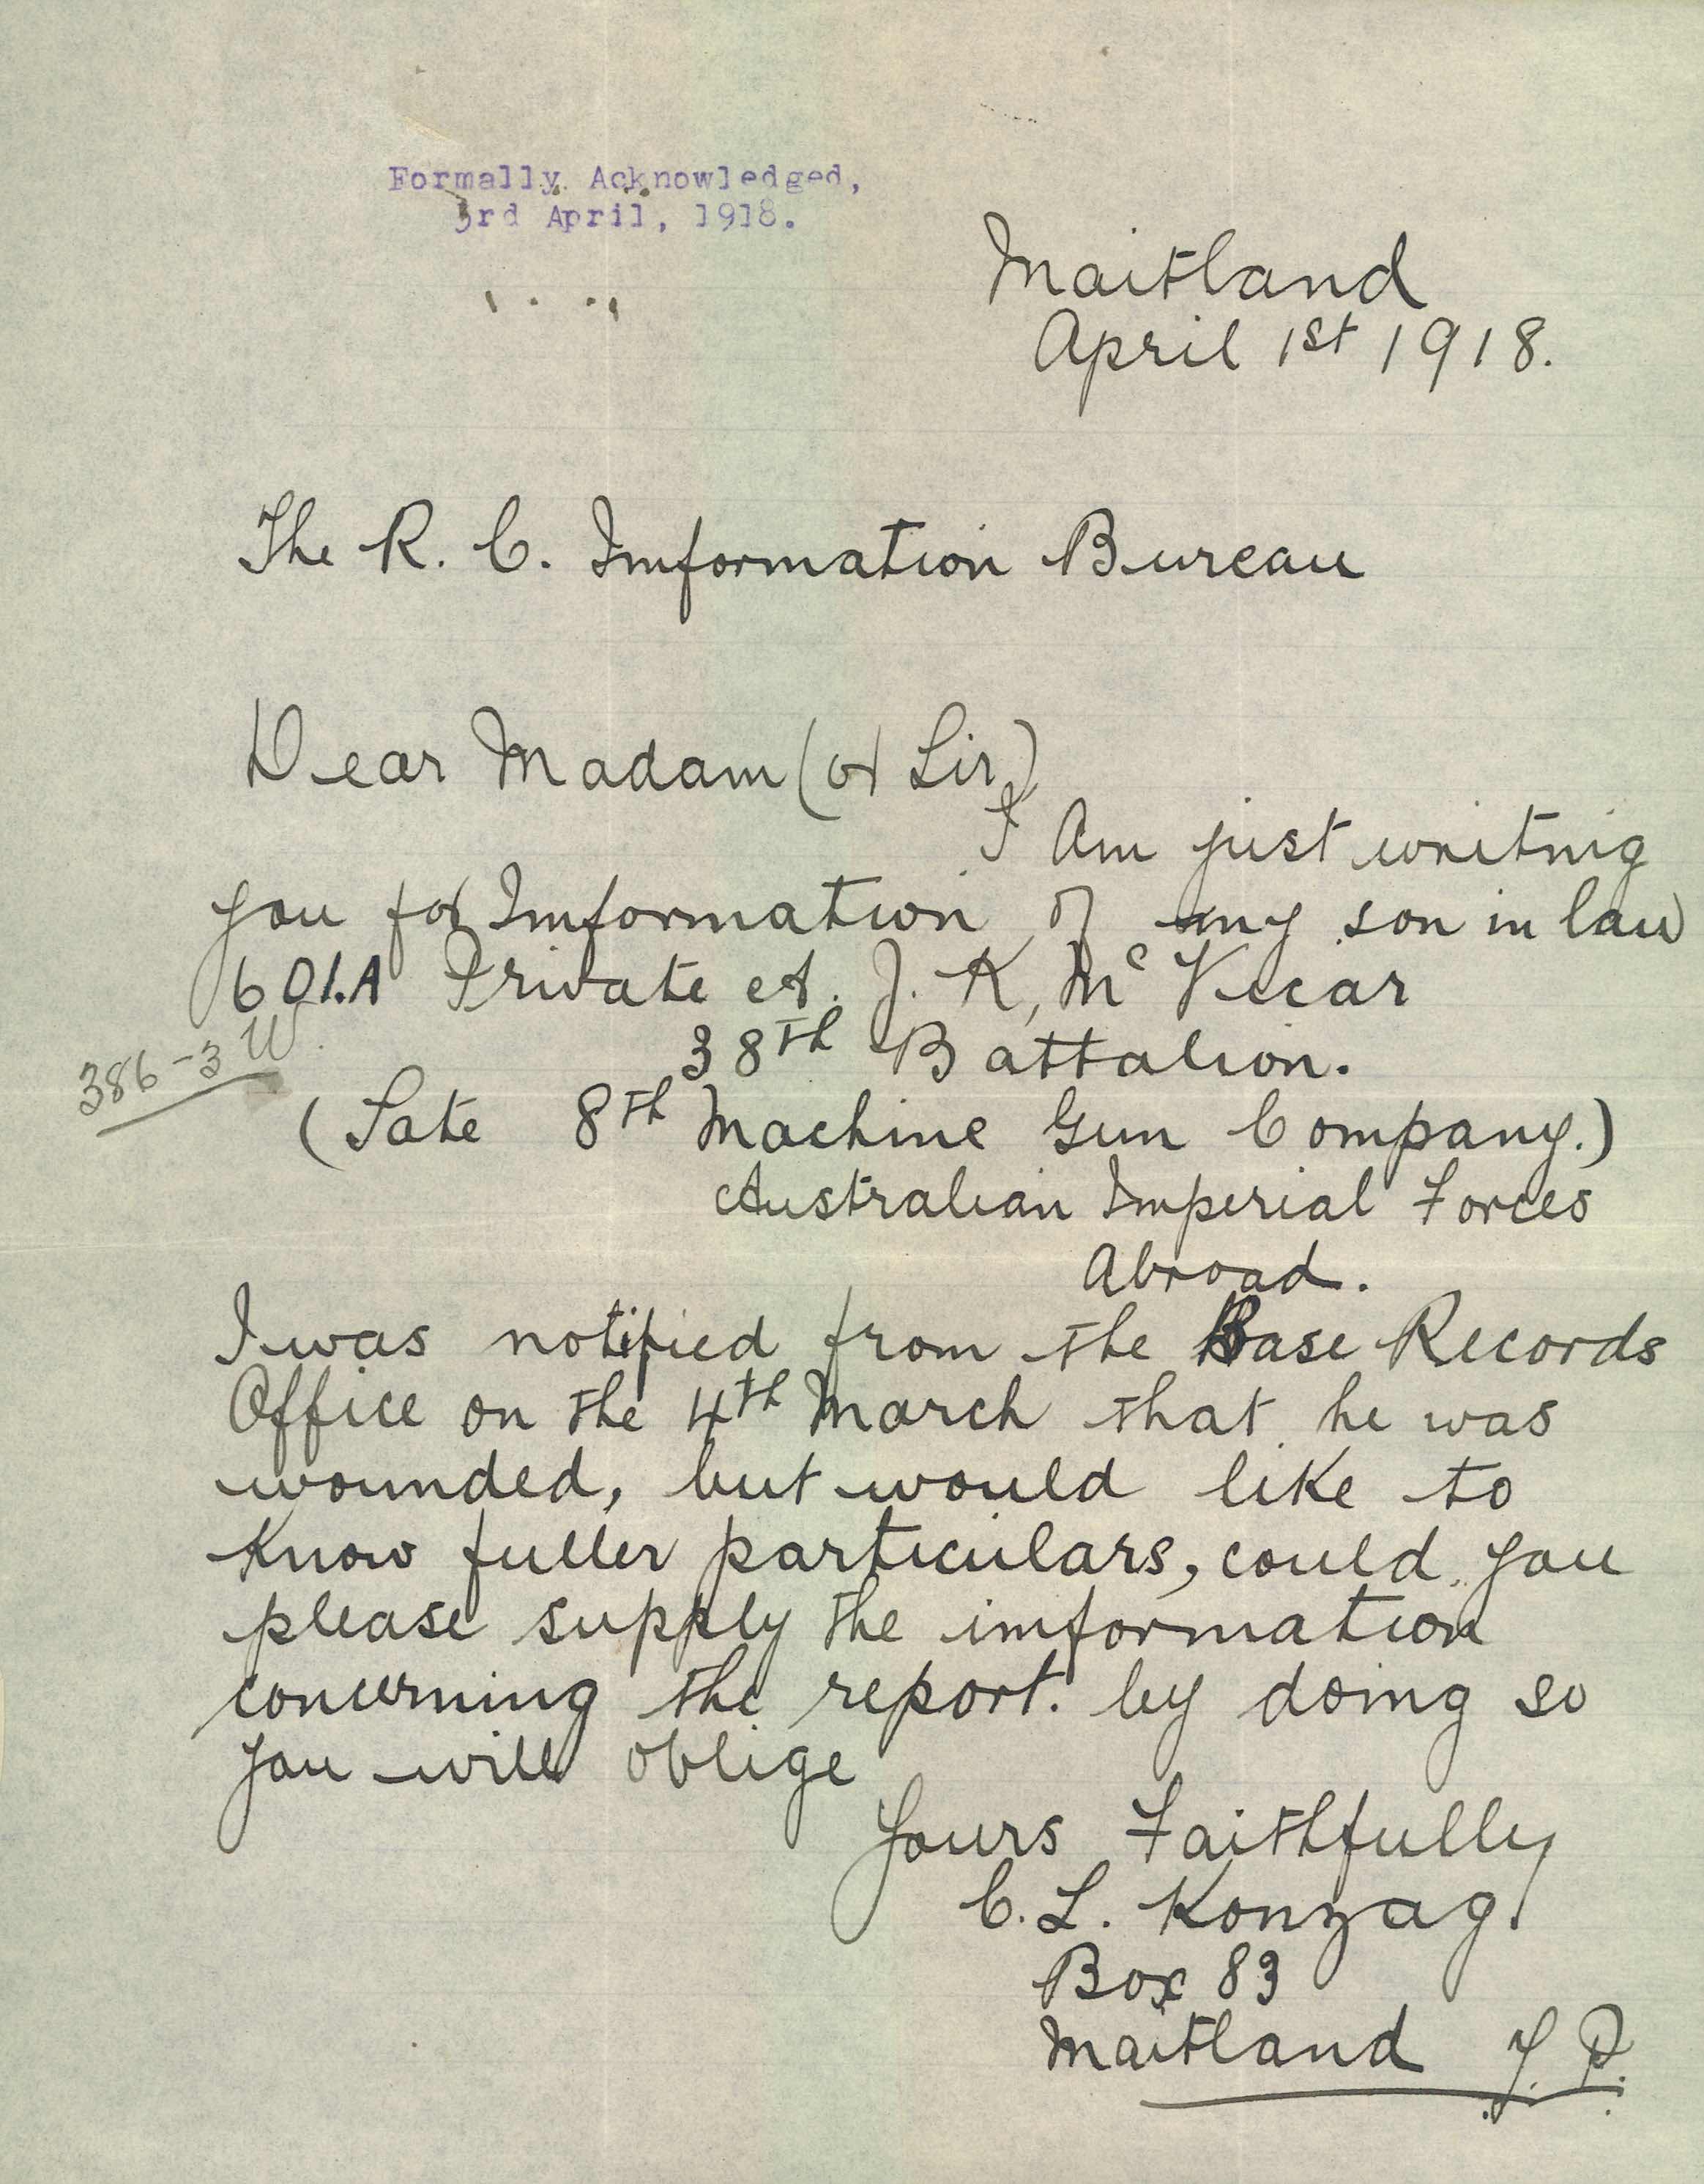 Formally Acknowledged,
3rd April, 1918.
Maitland
April 1st 1918.
The R. C. Imformation Bureau
Dear Madam (or Sir)
I Am just writnig
you for Imformation of my son in law
601.A Private A. J. K, Mc Vicar
386-3 W.
38th Battalion.
(Late 8th Machine Gun Company.)
Australian Imperial Forces
Abroad.
I was notified from the Base Records
Office on the 4th March that he was
wounded, but would like to
Know fuller particulars, could you
please supply the imformation
concerning the report. by doing so
you will oblige
Yours Faithfully
C. L. Konzag.
Box 83
Maitland Y. P.